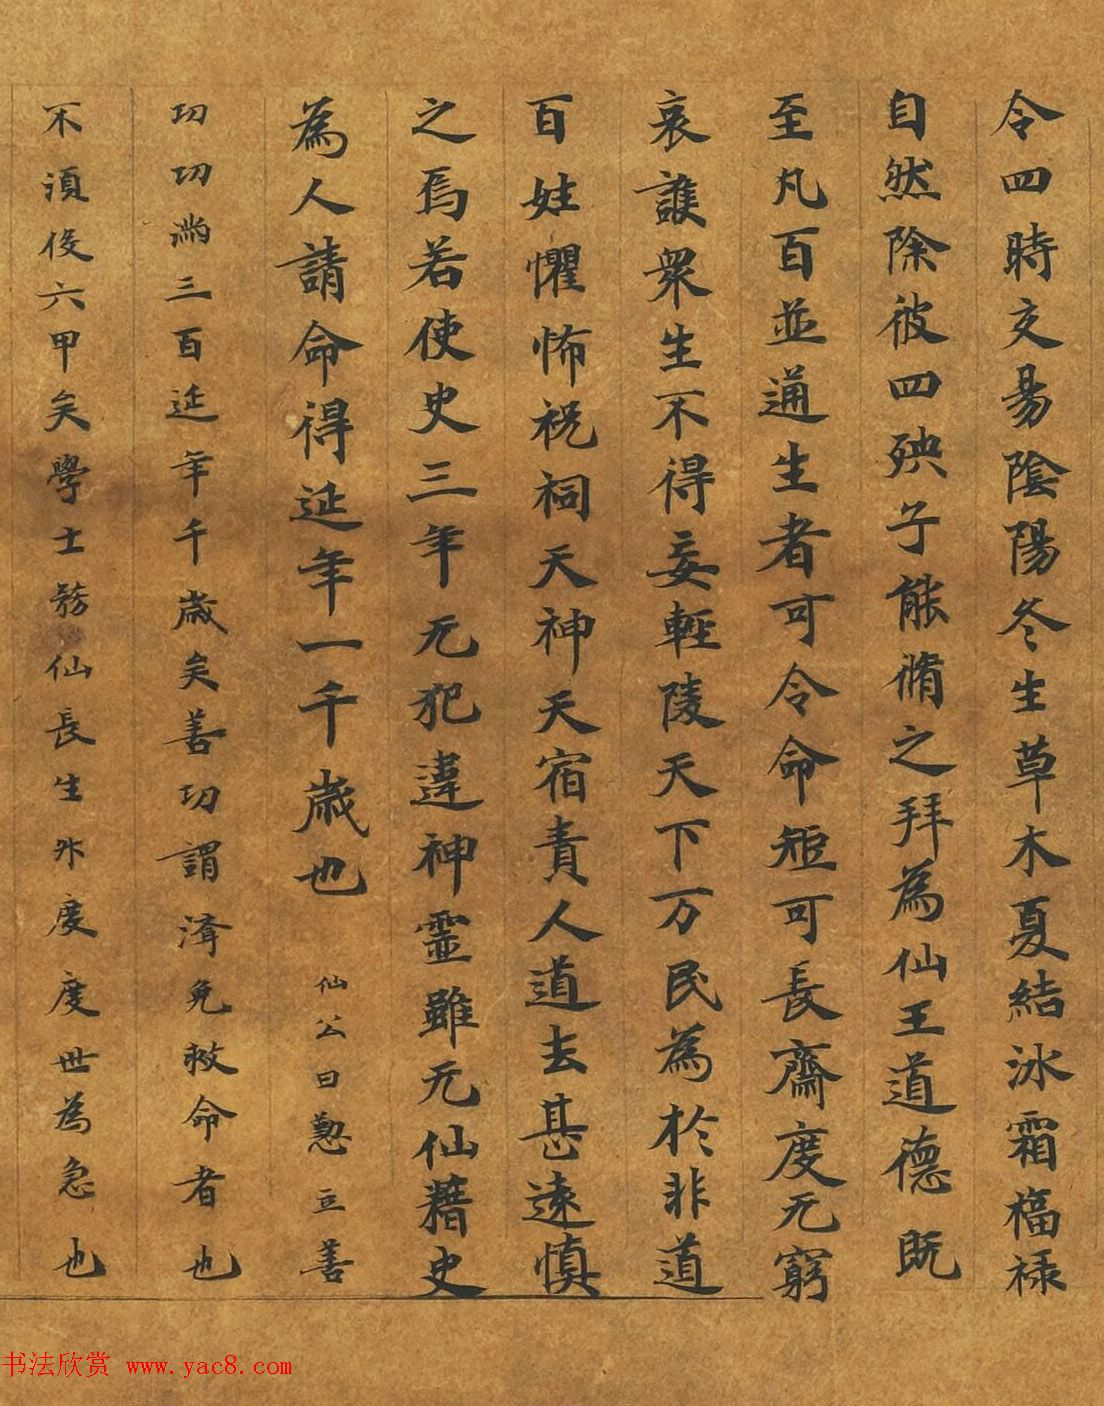 令四時交易陰陽冬生草木夏結冰霜福禄
自然除彼四殃子能脩之拜為仙王道德既
至凡百並通生者可令命短可長齋度无窮
哀誰衆生不得妄輕陵天下万民為於非道
百姓懼怖祝祠天神天宿責人道去甚遠慎
之焉若使史三年无犯違神靈雖无仙藉史
為人請命得延年一千歲也 仙公曰懃立善
功功滿三百延年千歲矣善功謂濟免救命者也
不須役六甲矣學士務仙長生外度度世為急也
书法欣赏 www.yac8.com